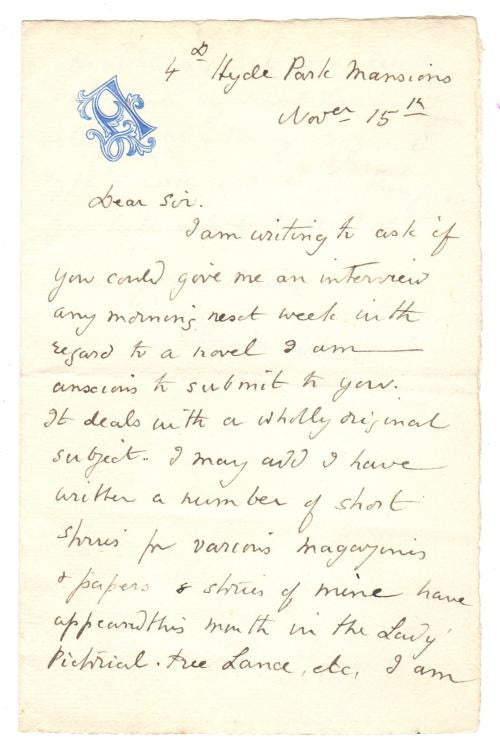 4 D Hyde Park Mansions
Nover 15th
Dear Sir.
I am writing to ask if
you could give me an interview
any morning next week with
regard to a novel I am
anxious to submit to you.
It deals with a wholly original
subject. I may add I have
written a number of short
stories for various magazines
& papers & stories of mine have
appeared this month in the Lady'
Pictorial. Free Lance, etc, I am